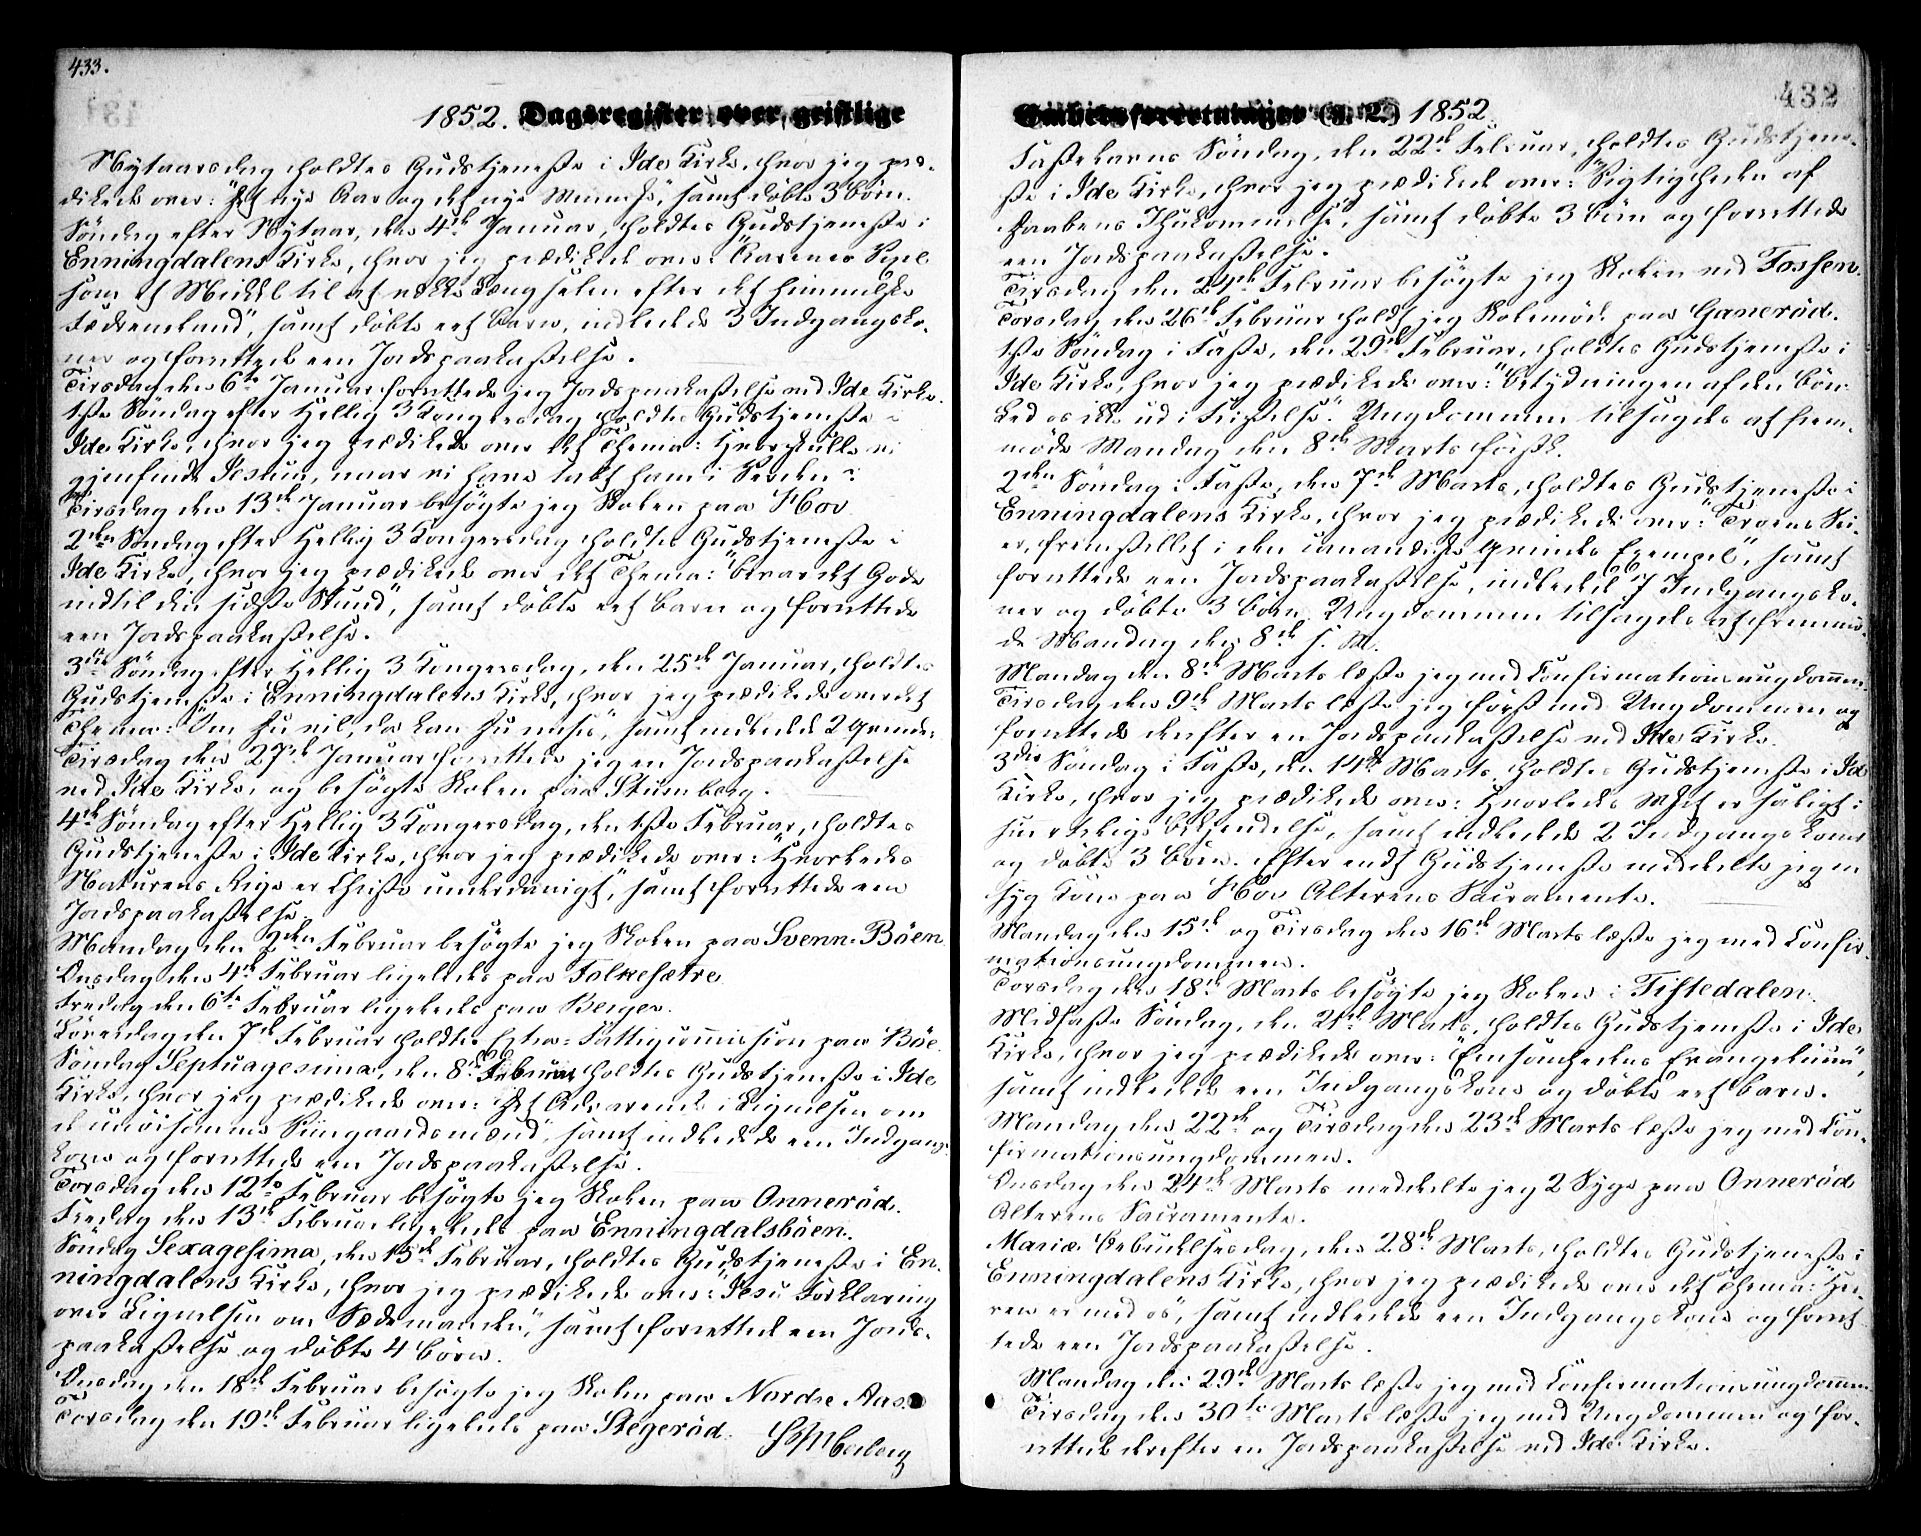 433.
1852. Dagsregister over geistlige
Nytaarsdag holdtes Gudstjeneste i Ide Kirke, hvor jeg præ-
dikede over: "Det nye Aar og det nye Menneske", samt døbte 3 Børn.
Söndag efter Nytaar, den 4de Januar, holdtes Gudstjeneste i
Enningdalens Kirke, hvor jeg prædikede over:
som et Middel til at vække Længselen efter det himmelske
Fædreneland", samt døbte eet Barn, indledede 3 Indgangsko-
ner og forrettede een Jordspaakastelse.
Tirsdag den 6te Januar forrettede jeg Jordspaakastelse ved Ide Kirke.
1ste Söndag efter Hellig 3 Kongersdag holdtes Gudstjeneste i
Ide Kirke, hvor jeg prædikede over det Thema: Hvor skulle vi
gjenfinde Jesum, naar vi have tabt ham i Verden?
Tirsdag den 13de Januar besøgte jeg Skolen paa Hov
2den Söndag efter Hellig 3 Kongersdag holdtes Gudstjeneste i
Ide Kirke, hvor jeg prædikede over det Thema: "Bevar det Gode
indtil din sidste Stund", samt døbte eet Barn og forrettede
een Jordspaakastelse.
3die Söndag efter Hellig 3 Kongersdag, den 25de Januar, holdtes
Gudstjeneste i Enningdalens Kirke, hvor jeg prædikede over det
Thema: "Om Du vil, da kan Du rense", samt indledede 2
Tirsdag den 27de Januar forrettede jeg en Jordspaakastelse
ved Ide Kirke, og besøgte Skolen paa Stumberg.
4de Söndag efter Hellig 3 Kongersdag, den 1ste Februar, holdtes
Gudstjeneste i Ide Kirke, hvor jeg prædikede over: "Hvorledes
Naturens Rige er Christo underdanigt", samt forrettede een
Jordspaakastelse.
Mandag den 2den Februar besøgte jeg Skolen paa Svenne-Böen
Onsdag den 4de Februar ligeledes paa Folkesætre
Fredag den 6te Februar ligeledes paa Berger.
Löverdag den 7de Februar holdtes Extra-Fattigcommission paa Böe.
Söndag Septuagesima, den 8de Februar holdtes Gudstjeneste i Ide
Kirke, hvor jeg prædikede over: Det Advarende i Lignelsen om
de Viingaardsmænd", samt indledede een Indgangs-
kone og forrettede een Jordspaakastelse.
Torsdag den 12te Februar besøgte jeg Skolen paa Onneröd.
Fredag den 13de Februar ligeledes paa Enningdalsböen.
Söndag Sexagesima, den 15de Februar, holdtes Gudstjeneste i En-
ningdalens Kirke, hvor jeg prædikede over: "Jesu Forklaring
over Lignelsen om Sædemanden", samt forrettede een Jords-
paakastelse og døbte 4 Børn.
Onsdag den 18de Februar besøgte jeg Skolen paa Nordre Aas.
Torsdag den 19de Februar ligeledes paa Stegeröd.
432
Embedsforretninger (§. 2.) 1852.
Fastelavns Söndag, den 22de Februar, holdtes Gudstjene-
ste i Ide Kirke, hvor jeg prædikede over: "Vigtigheden af
Daabens Ihukommelse", samt døbte 3 Børn og forrettede
een Jordspaakastelse.
Tirsdag den 24de Februar besøgte jeg Skolen ved Fossen.
Torsdag den 26de Februar holdt jeg Skolemöde paa Ganeröd.
1ste Söndag i Faste, den 29de Februar, holdtes Gudstjeneste i
Ide Kirke, hvor jeg prædikede over: "Betydningen af den Bön:
Led os ikke ud i Fristelse". Ungdommen tilsagdes at frem-
møde Mandag den 8de Marts først.
2den Söndag i Faste, den 7de Marts, holdtes Gudstjeneste i
Enningdalens Kirke, hvor jeg prædikede over: "Troens Sei-
er, fremstillet i den cananæiske Qvindes Exempel", samt
forrettede een Jordspaakastelse, indledede 7 Indgangsko-
ner og døbte 3 Børn. Ungdommen tilsagdes at fremmø-
de Mandag den 8de s. M.
Mandag den 8de Marts læste jeg med Confirmationsungdommen.
Tirsdag den 9de Marts læste jeg først med Ungdommen og
forrettede derefter en Jordspaakastelse ved Ide Kirke.
3die Söndag i Faste, den 14de Marts holdtes Gudstjeneste i Ide
Kirke, hvor jeg prædikede over: Hvorledes
Bekjendelse, samt indledede 2 Indgangskoner
og døbte 3 Børn. Efter endt Gudstjeneste meddelte jeg en
syg Kone paa Hov Alterens Sacramente.
Mandag den 15de og Tirsdag den 16de Marts læste jeg med Confir-
mationsungdommen.
Torsdag den 18de Marts besøgte jeg Skolen i Tistedalen.
Midfaste Söndag, den 21de Marts, holdtes Gudstjeneste i Ide
Kirke, hvor jeg prædikede over: "Eensomhedens Evangelium",
samt indledede een Indgangskone og døbte eet Barn.
Mandag den 22de og Tirsdag den 23de Marts læste jeg med Con-
firmationsungdommen.
Onsdag den 24de Marts meddelte jeg 2 Syge paa Onneröd
Alterens Sacramente.
Mariæ Bebudelsesdag, den 28de Marts, holdtes Gudstjeneste i
Enningdalens Kirke, hvor jeg prædikede over det Thema: "Her-
ren er med os", samt indledede een Indgangskone og forret-
tede een Jordspaakastelse.
Mandag den 29de Marts læste jeg med Confirmationsungdommen
Tirsdag den 30te Marts læste jeg med Ungdommen og for-
rettede derefter en Jordspaakastelse ved Ide Kirke.